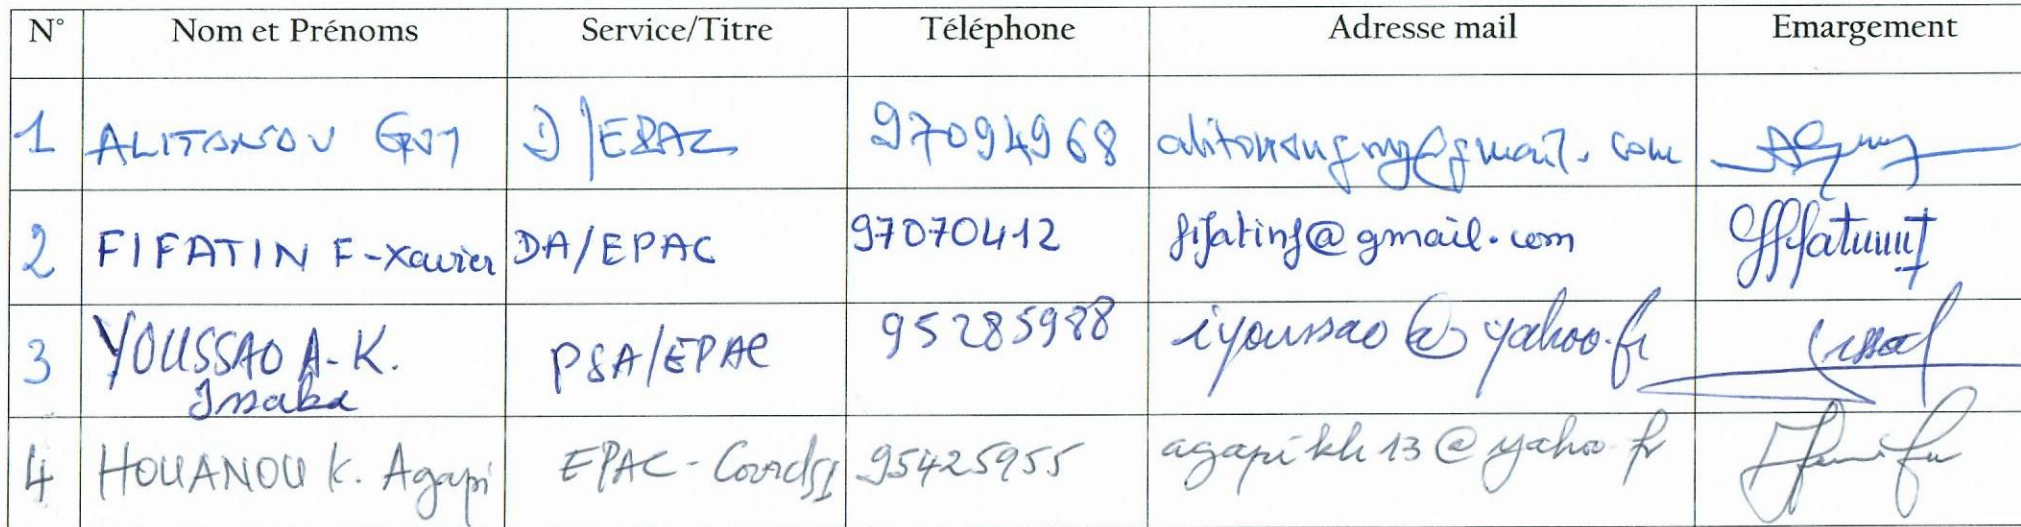 N° Nom et Prénoms Service/Titre Téléphone Adresse mail Emargement
1 ALITONOU GUY D/EPAC 97094968 alitonouguy@gmail.com
2 FIFATIN F-Xavier DA/EPAC 97070412 fifatinf@gmail.com
3 YOUSSAO A-K. PSA/EPAC 95285988 iyoussao@yahoo.fr
Issaka
4 HOUANOU K. Agapi EPAC- 95425955 agapikh13@yahoo.fr